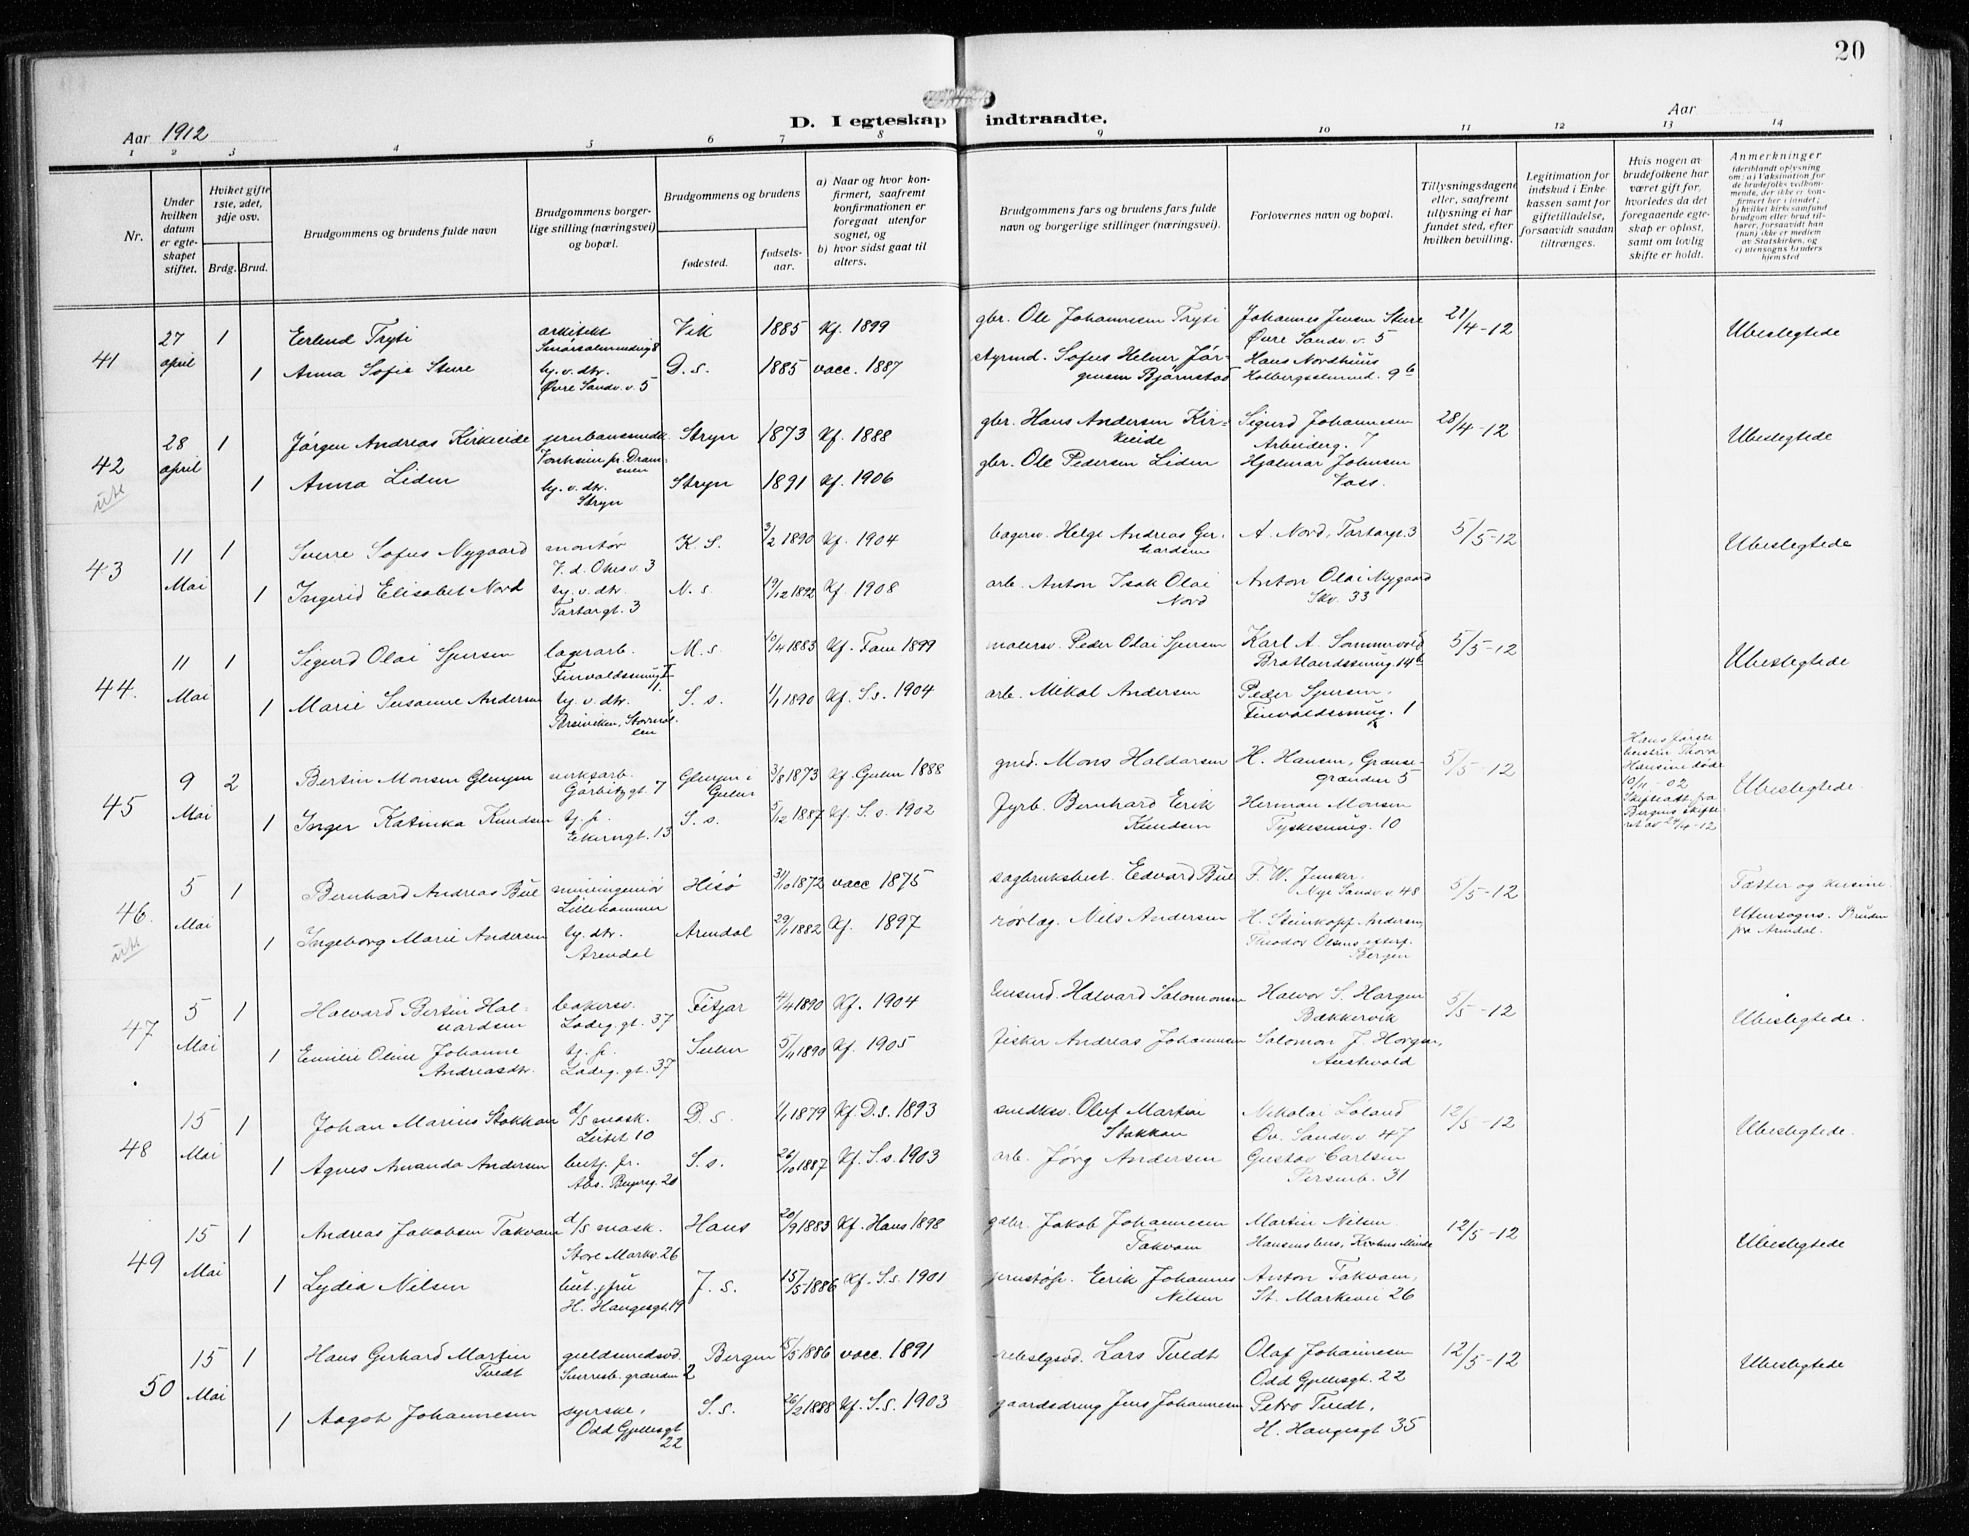 20
Aar 1912
D. I egteskap indtraadte.
Aar
1 2 3 4 5 6 7 8 9 10 11 12 13 14
Nr.
Under hvilken datum er egteskapet stiftet.
Hviket gifte 1ste, 2det, 3dje osv.
Brdg. Brud.
Brudgommens og brudens fulde navn
Brudgommens borgerlige stilling (næringsvei) og bopæl.
Brudgommens og brudens
fødested.
fødselsaar.
a) Naar og hvor konfirmert, saafremt konfirmationen er foregaat utenfor sognet, og
b) hvor sidst gaat til alters.
Brudgommens fars og brudens fars fulde navn og borgerlige stillinger (næringsvei).
Forlovernes navn og bopæl.
Tillysningsdagene eller, saafremt tillysning ei har fundet sted, efter hvilken bevilling.
Legitimation for indskud i Enkekassen samt for giftetilladelse, forsaavidt saadan tiltrænges.
Hvis nogen av brudefolkene har været gift før, hvorledes da det foregaaende egteskap er opløst, samt om lovlig skifte er holdt.
Anmerkninger
41 27 april 1 Erlend Tryti arkitekt Vik 1885 Kf. 1899 gbr. Ole Johannesen Tryti Johannes Jensen Sture Øvre Sandv. v. 5 21/4-12 Ubeslegtede
1 Anna Sofie Sture hj. v. dtr. Øvre Sandv. v. 5 D. s. 1885 vacc. 1887 styrmd. Sofus Helner Jørgensen Bjørnstad Hans Nordhuus Holbergsalmend. 9b
42 ute 28 april 1 Jørgen Andreas Kirkeeide Stryn 1873 Kf. 1888 gbr. Hans Andersen Kirkeeide Sigurd Johannesen Arbeiderg. 7 28/4-12 Ubeslegtede
1 Anna Liden hj. v. dtr. Stryn Stryn 1891 Kf. 1906 gbr. Ole Pedersen Liden Hjalmar Johnsen Voss.
43 11 Mai 1 Sverre Sofus Nygaard montør K. S. 3/2 1890 Kf. 1904 bagersv. Helge Andreas Gerhardsen A. Nord, Tartargt. 3 5/5-12 Ubeslegtede
1 Ingerid Elisabet Nord hj. v. dtr. Tartargt. 3 N. s 19/12 1892 Kf. 1908 arb. Anton Isak Olai Nord Anton Olai Nygaard Skv. 33
44. 11 Mai 1 Sigurd Olai Spersen lagerarb. M. s 10/4 1883 Kf. Fane 1899 malersv. Peder Olai Spersen Karl A. Sommervold Bratlandssmug. 14b 5/5-12 Ubeslegtede
1 Marie Susanne Andersen hj. v. dtr. S. s. 1/1 1890 Kf. S. s. 1904 arb. Mikal Andersen Peder Spersen, Finvoldssmug. 1
45 9 Mai 2 Bertin Monsen Glenjen verksarb. 3/8 1873 Kf. Gulen 1888 gmd. Mons Haldorsen H. Hansen, Grænsegrænden 5 5/5-12 Hans første hustru Thora Hansine døde 10/11-02 Skifteatt. fra Bergens skifteret av 24/4-12 Ubeslegtede.
1 Inger Katinka Knudsen S. s. 5/12 1887 Kf. S. s. 1902 fyrb. Bernhard Erik Knudsen Herman Monsen Tyskesmug. 10
46. ute 5 Mai 1 Bernhard Andreas Bue mineingeniør Lillehammer Hisø 31/10 1872 vacc 1875 sagbruksbest. Edvard Bue F. W. Junker. Nye Sandv. v 48 5/5-12 Fætter og kusine.
1 Ingeborg Marie Andersen hj. dtr. Arendal Arendal 29/1 1882 Kf. 1897 rørlæg. Nils Andersen H. Steinkopf-Andersen, Theodor Olsens efterf. Bergen Utensogns. Bruden fra Arendal.
47 5 Mai 1 Halvard Bertin Halvardsen bakersv. Ladeg. gt. 37 Fitjar 4/4 1890 Kf. 1904 Halvard Salomonsen Halvor S. Horgen Bækkervik 5/5-12 Ubeslegtede.
1 Emilie Oline Johanne Andreasdtr. Ladeg. gt. 37 Sulen 5/4 1890 Kf. 1905 fisker Andreas Johannesen Salomon J. Horgen, Austevold
48 15 Mai 1 Johan Marius Stokkan d/s mask. D. s. 1/1 1879 Kf. D. s. 1893 smedksv. Oluf Martin Stokkan Nikolai Løland Øv. Sandv. v. 47 12/5-12 Ubeslegtede.
1 Agnes Amanda Andersen S. s. 26/10 1887 Kf. S. s. 1903 arb. Jørg Andersen Gustav Carlsen 31
49 15 Mai 1 Andreas Jakobsen Takvam d/s mask. Store Markv. 26 Haus 20/9 1883 Kf. Haus 1898 gdbr. Jakob Johannesen Takvam Martin Nilsen 12/5-12 Ubeslegtede
1 Lydia Nilsen but. fru H. Haugesgt. 19 J. s. 15/5 1886 Kf. S. s. 1901 jernstøp. Eerik Johannes Nilsen Anton Takvam, St. Markevei 26
50 15 Mai 1 Hans Gerhard Martin Tvedt guldsmedsvd. Bergen 15/5 1886 vacc. 1891 Lars Tvedt Olaf Johannesen Odd Gjellesgt 22 12/5-12 Ubeslegtede
1 Aagot Johannesen syerske, Odd Gjellesgt 22 S. s. 26/2 1888 Kf. S. s. 1903 gaardsdreng Jens Johannesen Petro Tvedt, H. Haugesgt 35